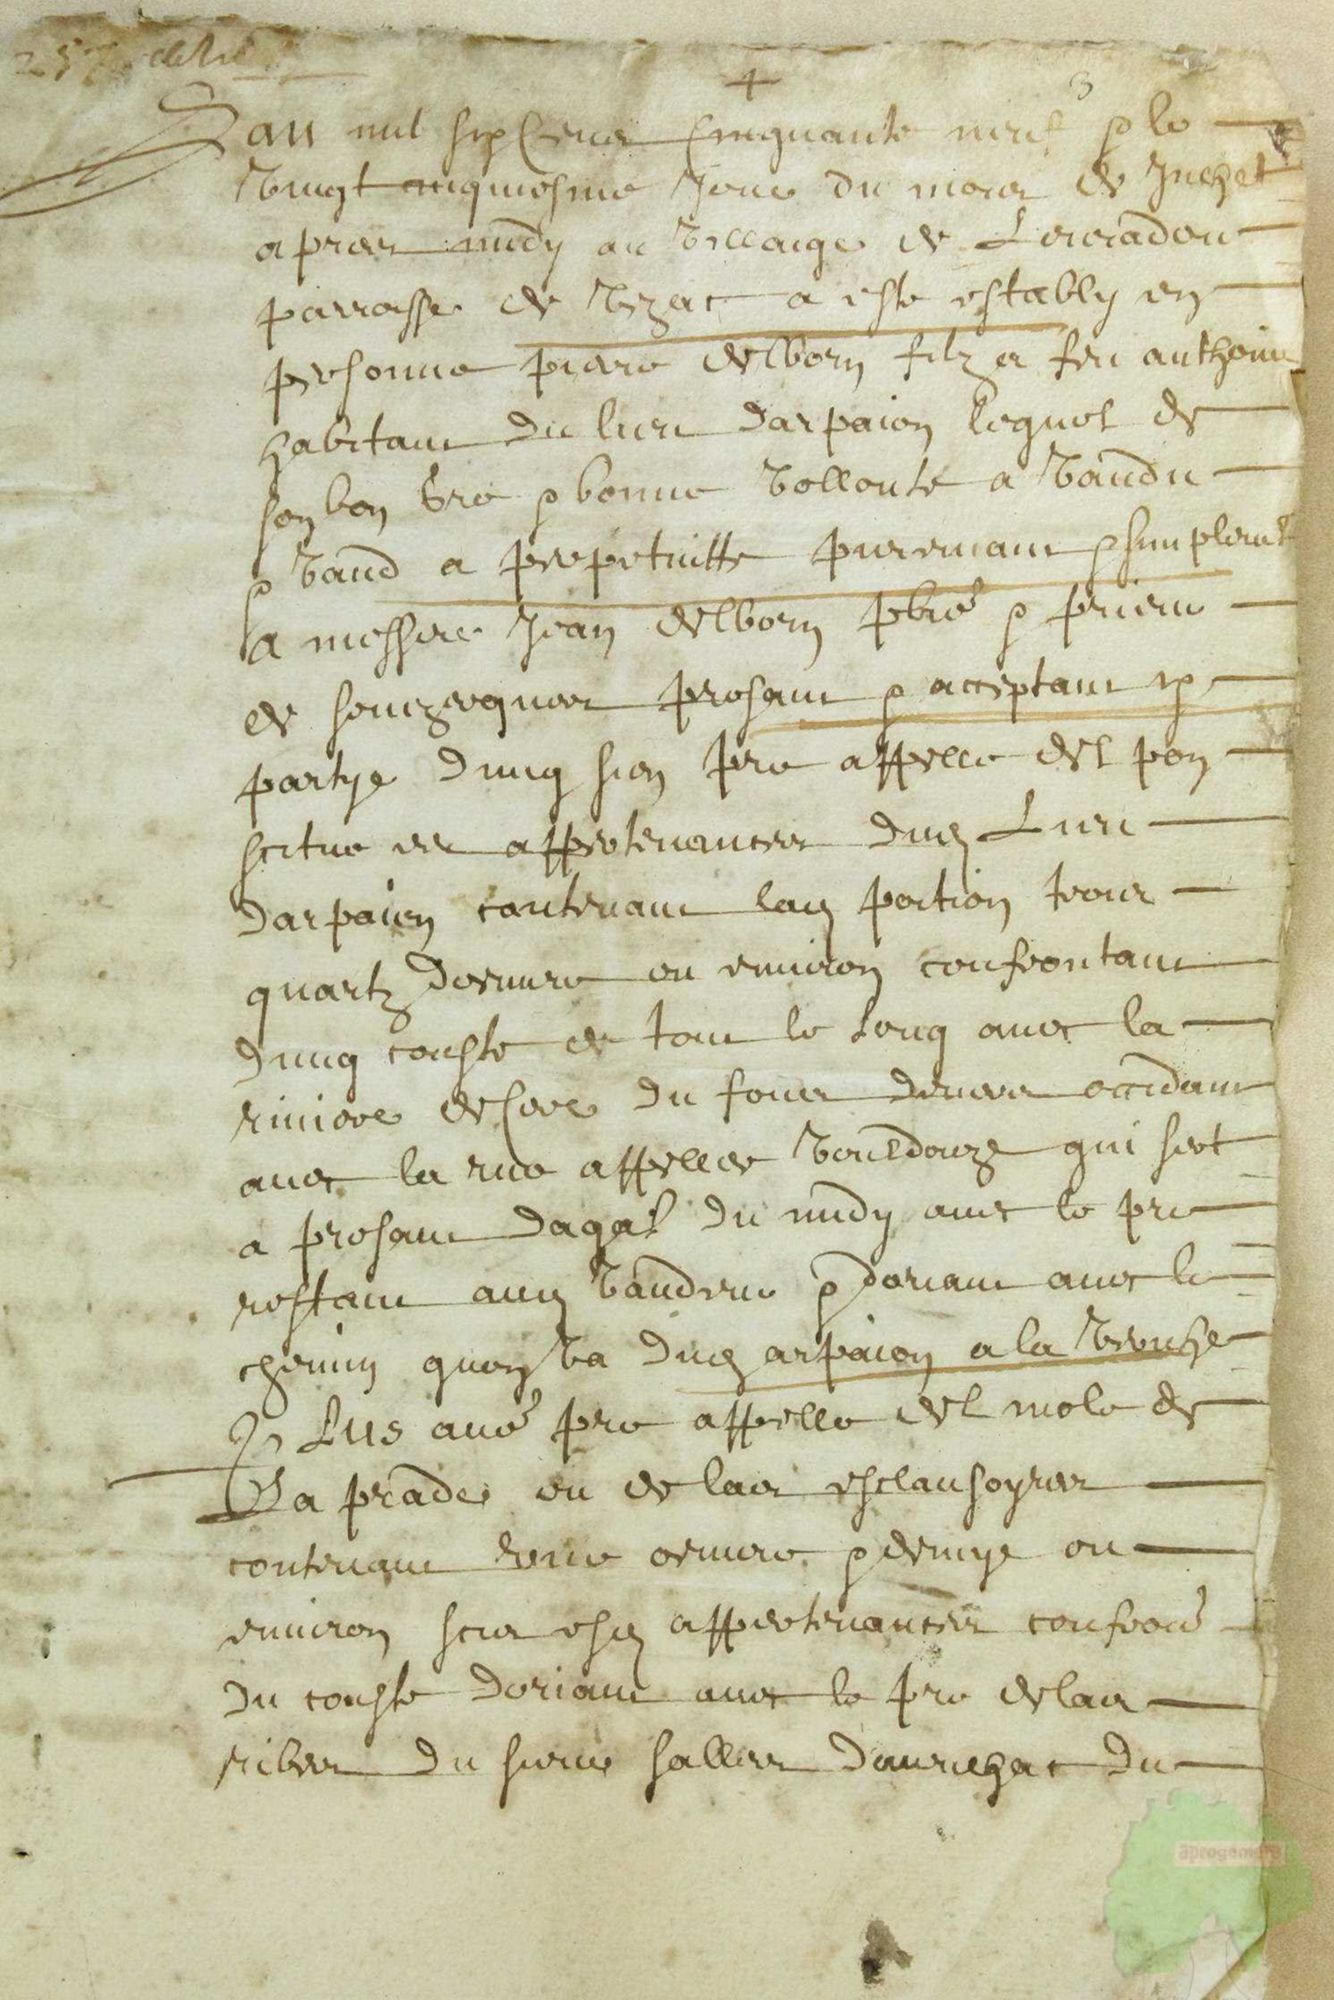 +
3
Lan mil six cens cinquante neuf & le
vingt cinquiesme jour du mois de Juchet
apres midy au villaige de Lou
parroisse de Vezac a este estably en
personne Piere Delborn filz a feu Anthoine
habitant du lieu Darpaion lequel de
son bon gre & bonne vollonte a vandu
& vand a perpetuitte puremant & simplemt
a messire Jean Delborn pbre & prieur
de presant & acceptant ung
partye dung sien pre appelle del pon
scitue es appertenances dud Lieu
Darpaion contenant lad portion trois
quartz doeuvre ou environ confrontant
dung couste de tout le long avec la
riviere de Cere du fons devers occidant
avec la rue appellee qui sert
a presant du midy avec le pre
restant aud vandeur & doriant avec le
chemin quon va dud Arpaion a la
Plus aue pre appelle del mole de
La prade ou de las esclausoyres
contenant une oeuvre & demye ou
environ scis esd appertenances confron
du couste doriant avec le pre de las
ribes du sieur Salles Daurilhac du
aprogemere